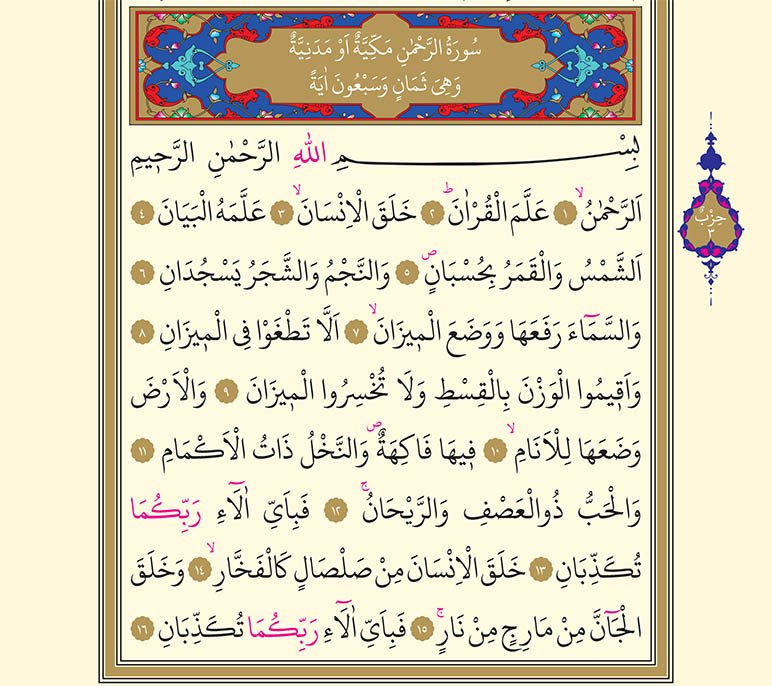 سُورَةُ الرَّحْمٰنِ مَكِّيَّةٌ اَوْ مَدَنِيَّةٌ
وَهِيَ ثَمَانٍ وَسَبْعُونَ اٰيَةً
بِسْمِ اللّٰهِ الرَّحْمٰنِ الرَّح۪يمِ
اَلرَّحْمٰنُۙ ﴿١﴾ عَلَّمَ الْقُرْاٰنَۜ ﴿٢﴾ خَلَقَ الْاِنْسَانَۙ ﴿٣﴾ عَلَّمَهُ الْبَيَانَ ﴿٤﴾
حِزْبٌ
٣
اَلشَّمْسُ وَالْقَمَرُ بِحُسْبَانٍۖ ﴿٥﴾ وَالنَّجْمُ وَالشَّجَرُ يَسْجُدَانِ ﴿٦﴾
وَالسَّمَٓاءَ رَفَعَهَا وَوَضَعَ الْم۪يزَانَۙ ﴿٧﴾ اَلَّا تَطْغَوْا فِي الْم۪يزَانِ ﴿٨﴾
وَاَق۪يمُوا الْوَزْنَ بِالْقِسْطِ وَلَا تُخْسِرُوا الْم۪يزَانَ ﴿٩﴾ وَالْاَرْضَ
وَضَعَهَا لِلْاَنَامِۙ ﴿١٠﴾ ف۪يهَا فَاكِهَةٌۖ وَالنَّخْلُ ذَاتُ الْاَكْمَامِ ﴿١١﴾
وَالْحَبُّ ذُوالْعَصْفِ وَالرَّيْحَانُۚ ﴿١٢﴾ فَبِاَيِّ اٰلَٓاءِ رَبِّكُمَا
تُكَذِّبَانِ ﴿١٣﴾ خَلَقَ الْاِنْسَانَ مِنْ صَلْصَالٍ كَالْفَخَّارِۙ ﴿١٤﴾ وَخَلَقَ
الْجَٓانَّ مِنْ مَارِجٍ مِنْ نَارٍۚ ﴿١٥﴾ فَبِاَيِّ اٰلَٓاءِ رَبِّكُمَا تُكَذِّبَانِ ﴿١٦﴾